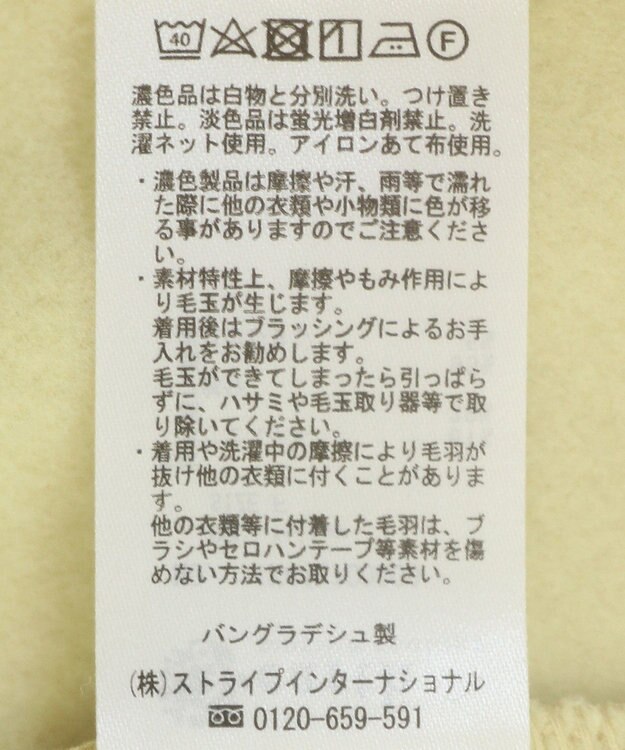 40 F
濃色品は白物と分別洗い。つけ置き
禁止。淡色品は蛍光増白剤禁止。洗
濯ネット使用。アイロンあて布使用。
・濃色製品は摩擦や汗、雨等で濡れ
た際に他の衣類や小物類に色が移
る事がありますのでご注意くださ
い。
・素材特性上、摩擦やもみ作用によ
り毛玉が生じます。
着用後はブラッシングによるお手
入れをお勧めします。
毛玉ができてしまったら引っぱら
ずに、ハサミや毛玉取り器等で取
り除いてください。
・着用や洗濯中の摩擦により毛羽が
抜け他の衣類に付くことがありま
す。
他の衣類等に付着した毛羽は、ブ
ラシやセロハンテープ等素材を傷
めない方法でお取りください。
バングラデシュ製
(株)ストライプインターナショナル
0120-659-591